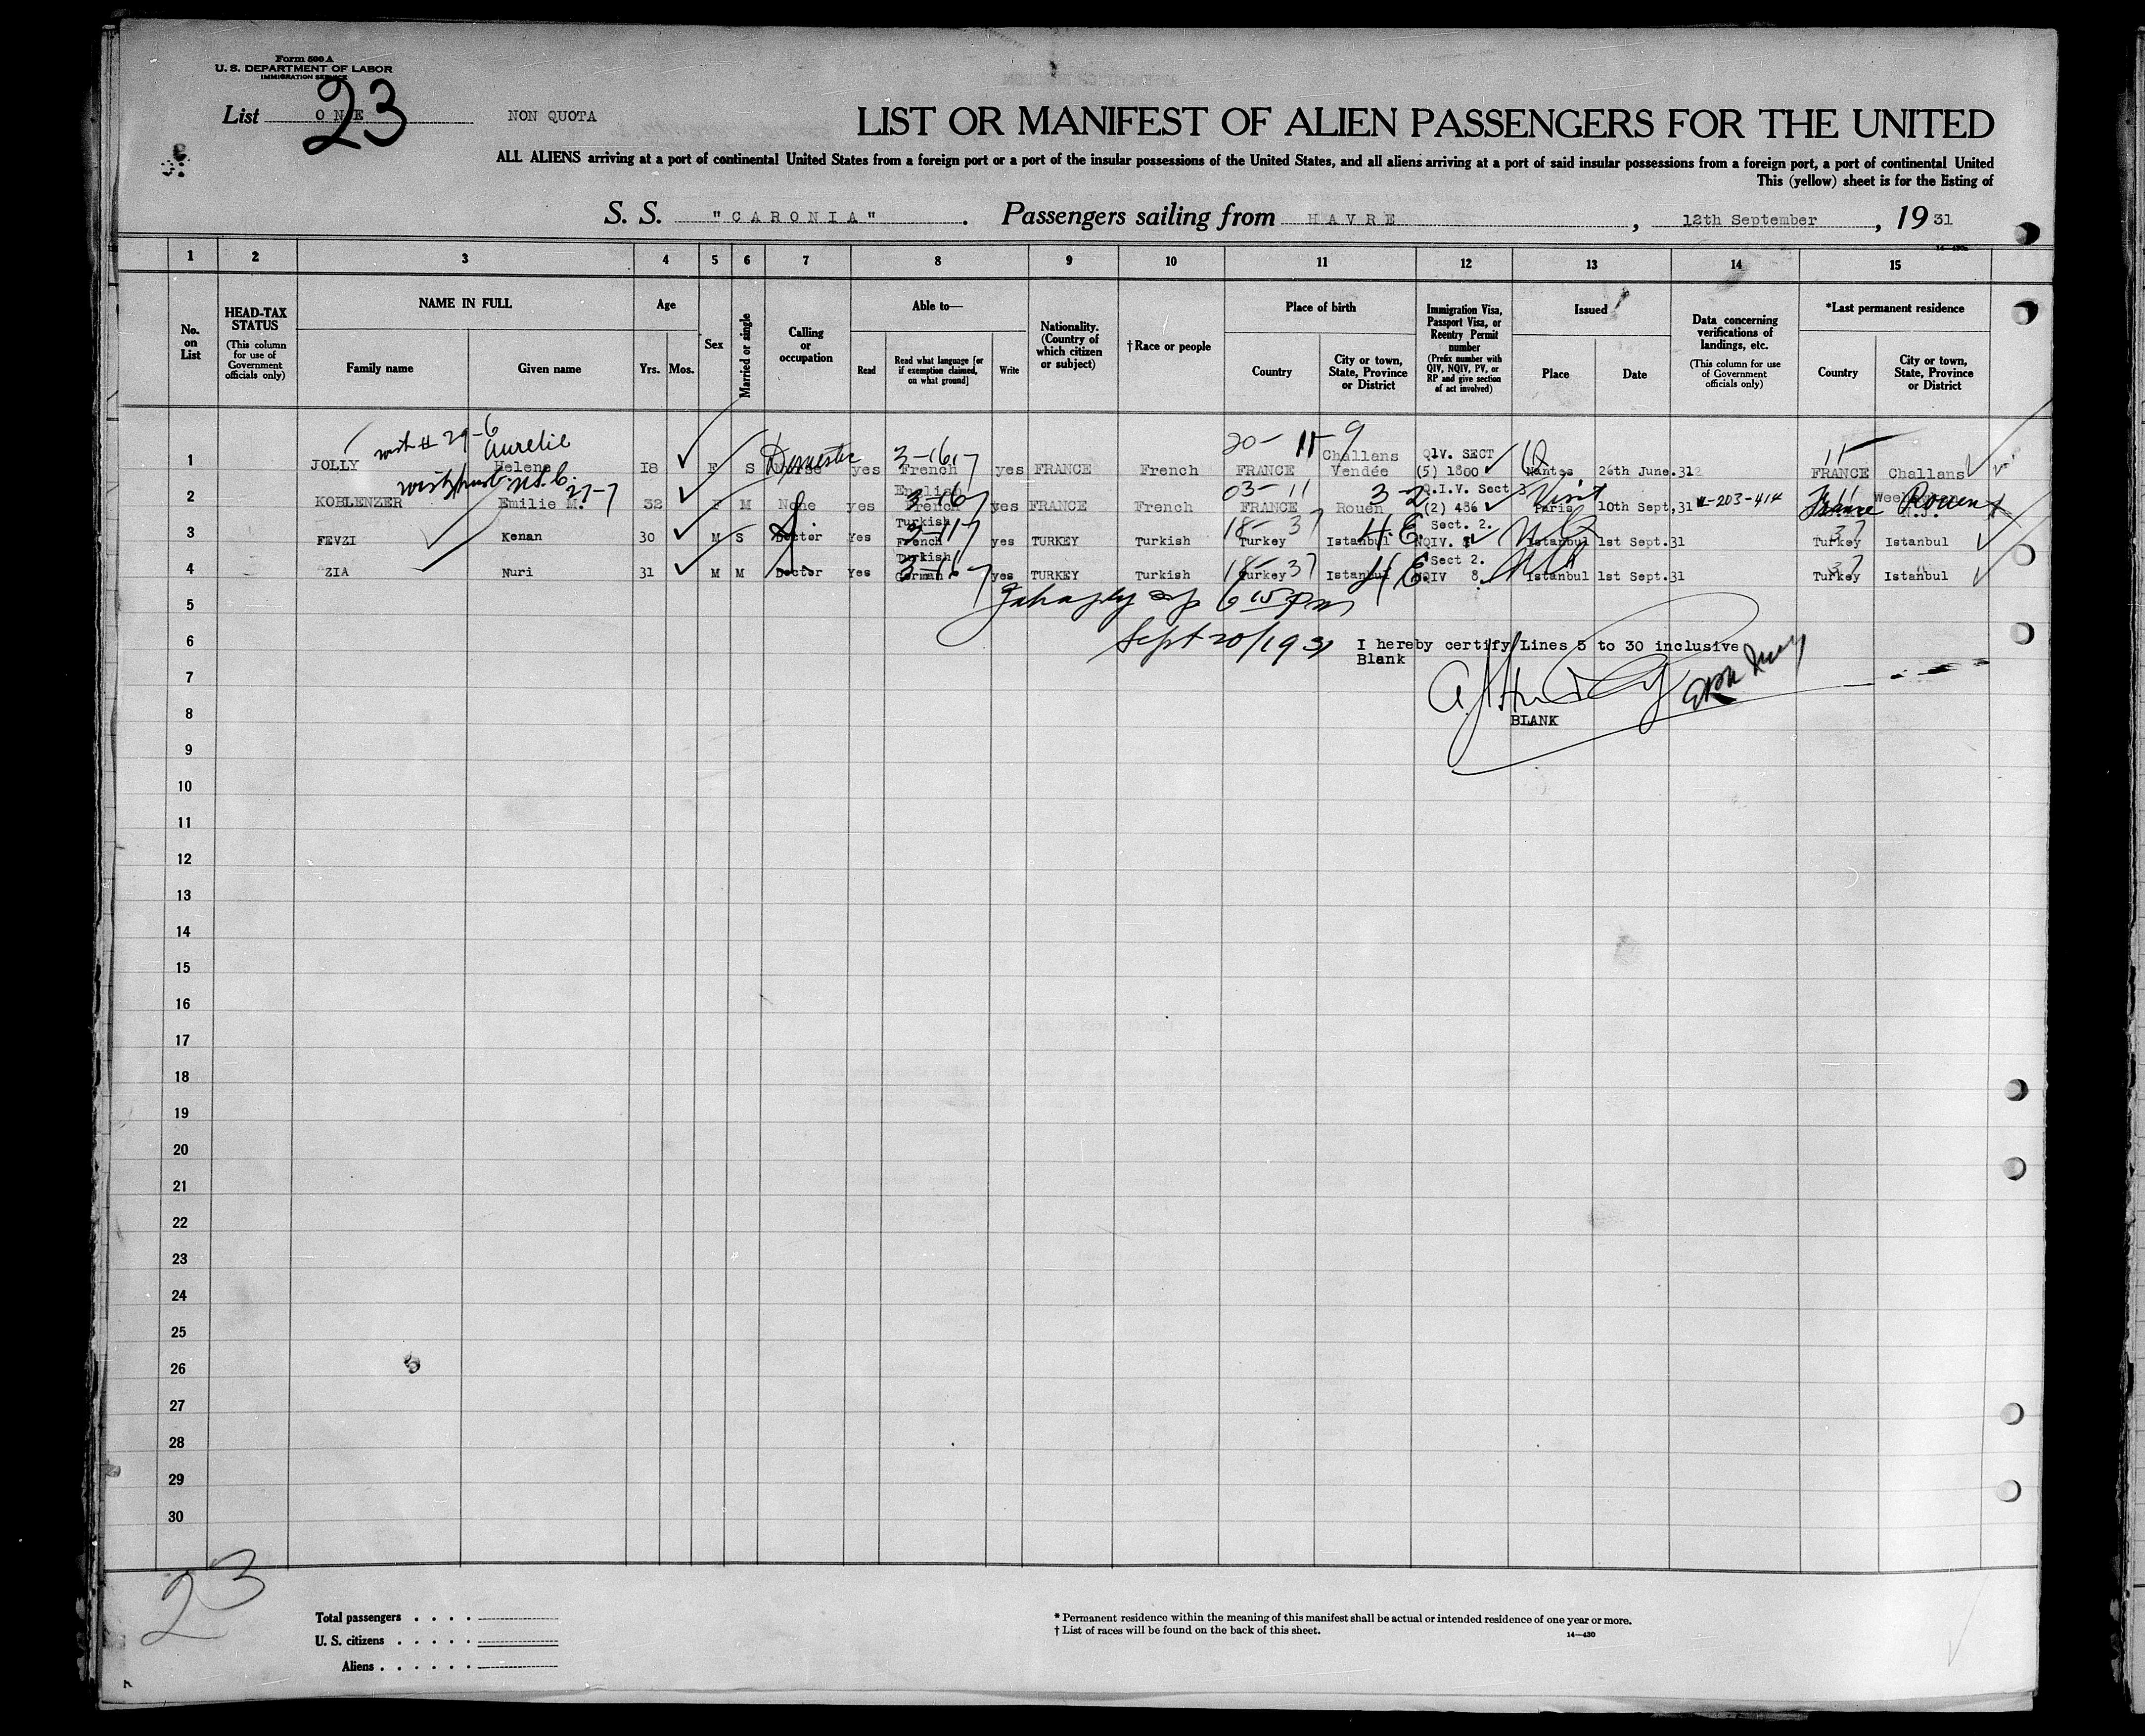 Form 500 A
U. S. DEPARTMENT OF LABOR
IMMIGRATION SERVICE
List ONE 23 NON QUOTA
LIST OR MANIFEST OF ALIEN PASSENGERS FOR THE UNITED
ALL ALIENS arriving at a port of continental United States from a foreign port or a port of the insular possessions of the United States, and all aliens arriving at a port of said insular possessions from a foreign port, a port of continental United
This (yellow) sheet is for the listing of
S. S. "CARONIA". Passengers sailing from HAVRE, 12th September, 1931
1 2 3 4 5 6 7 8 9 10 11 12 13 14 15
No. on List
HEAD-TAX STATUS
(This column for use of Government officials only)
NAME IN FULL
Family name Given name
Age
Yrs. Mos.
Sex
Married or single
Calling or occupation
Able to—
Read Read what language [or if exemption claimed, on what ground] Write
Nationality. (Country of which citizen or subject)
†Race or people
Place of birth
Country City or town, State, Province or District
Immigration Visa, Passport Visa, or Reentry Permit number
(Prefix number with QIV, NQIV, PV, or RP and give section of act involved)
Issued
Place Date
Data concerning verifications of landings, etc.
(This column for use of Government officials only)
*Last permanent residence
Country City or town, State, Province or District
29-6 Aurelie 20- 11- 9
1 JOLLY Helene 18 F S Domestic yes 3-16-7 French yes FRANCE French FRANCE Challans Vendée QIV. SECT (5) 1800 Nantes 26th June.31 11 FRANCE Challans
27-7 03- 11 3-2
2 KOBLENZER Emilie M. 32 F M None yes English 3-16-7 French yes FRANCE French FRANCE Rouen Q.I.V. Sect 3 (2) 486 Visit Paris 10th Sept,31 -203-414 11 France Rouen
3 FEVZI Kenan 30 M S Doctor Yes Turkish French yes TURKEY Turkish 18- 37 Turkey Istanbul Sect. 2. NQIV. Istanbul 1st Sept.31 37 Turkey Istanbul
4 ZIA Nuri 31 M M Doctor Yes Turkish German yes TURKEY Turkish 18- 37 Turkey Istanbul Sect 2. NQIV 8 Istanbul 1st Sept.31 37 Turkey Istanbul
5 6 15 pm
6 Sept 20/1931 I hereby certify Lines 5 to 30 inclusive
Blank
7
8 BLANK
9
10
11
12
13
14
15
16
17
18
19
20
21
22
23
24
25
26
27
28
29
30
23
Total passengers . . . .
U. S. citizens . . . . .
Aliens . . . . . .
* Permanent residence within the meaning of this manifest shall be actual or intended residence of one year or more.
† List of races will be found on the back of this sheet.
14—430